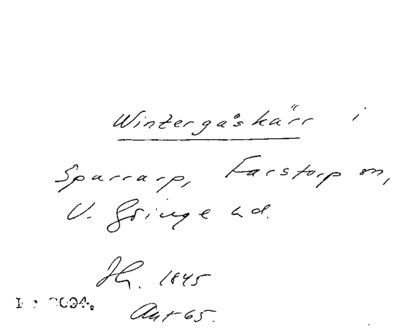 Wintergåskärr i
Sparrarp, Farstorp sn,
V. Göinge hd.
1845
Ant 65.